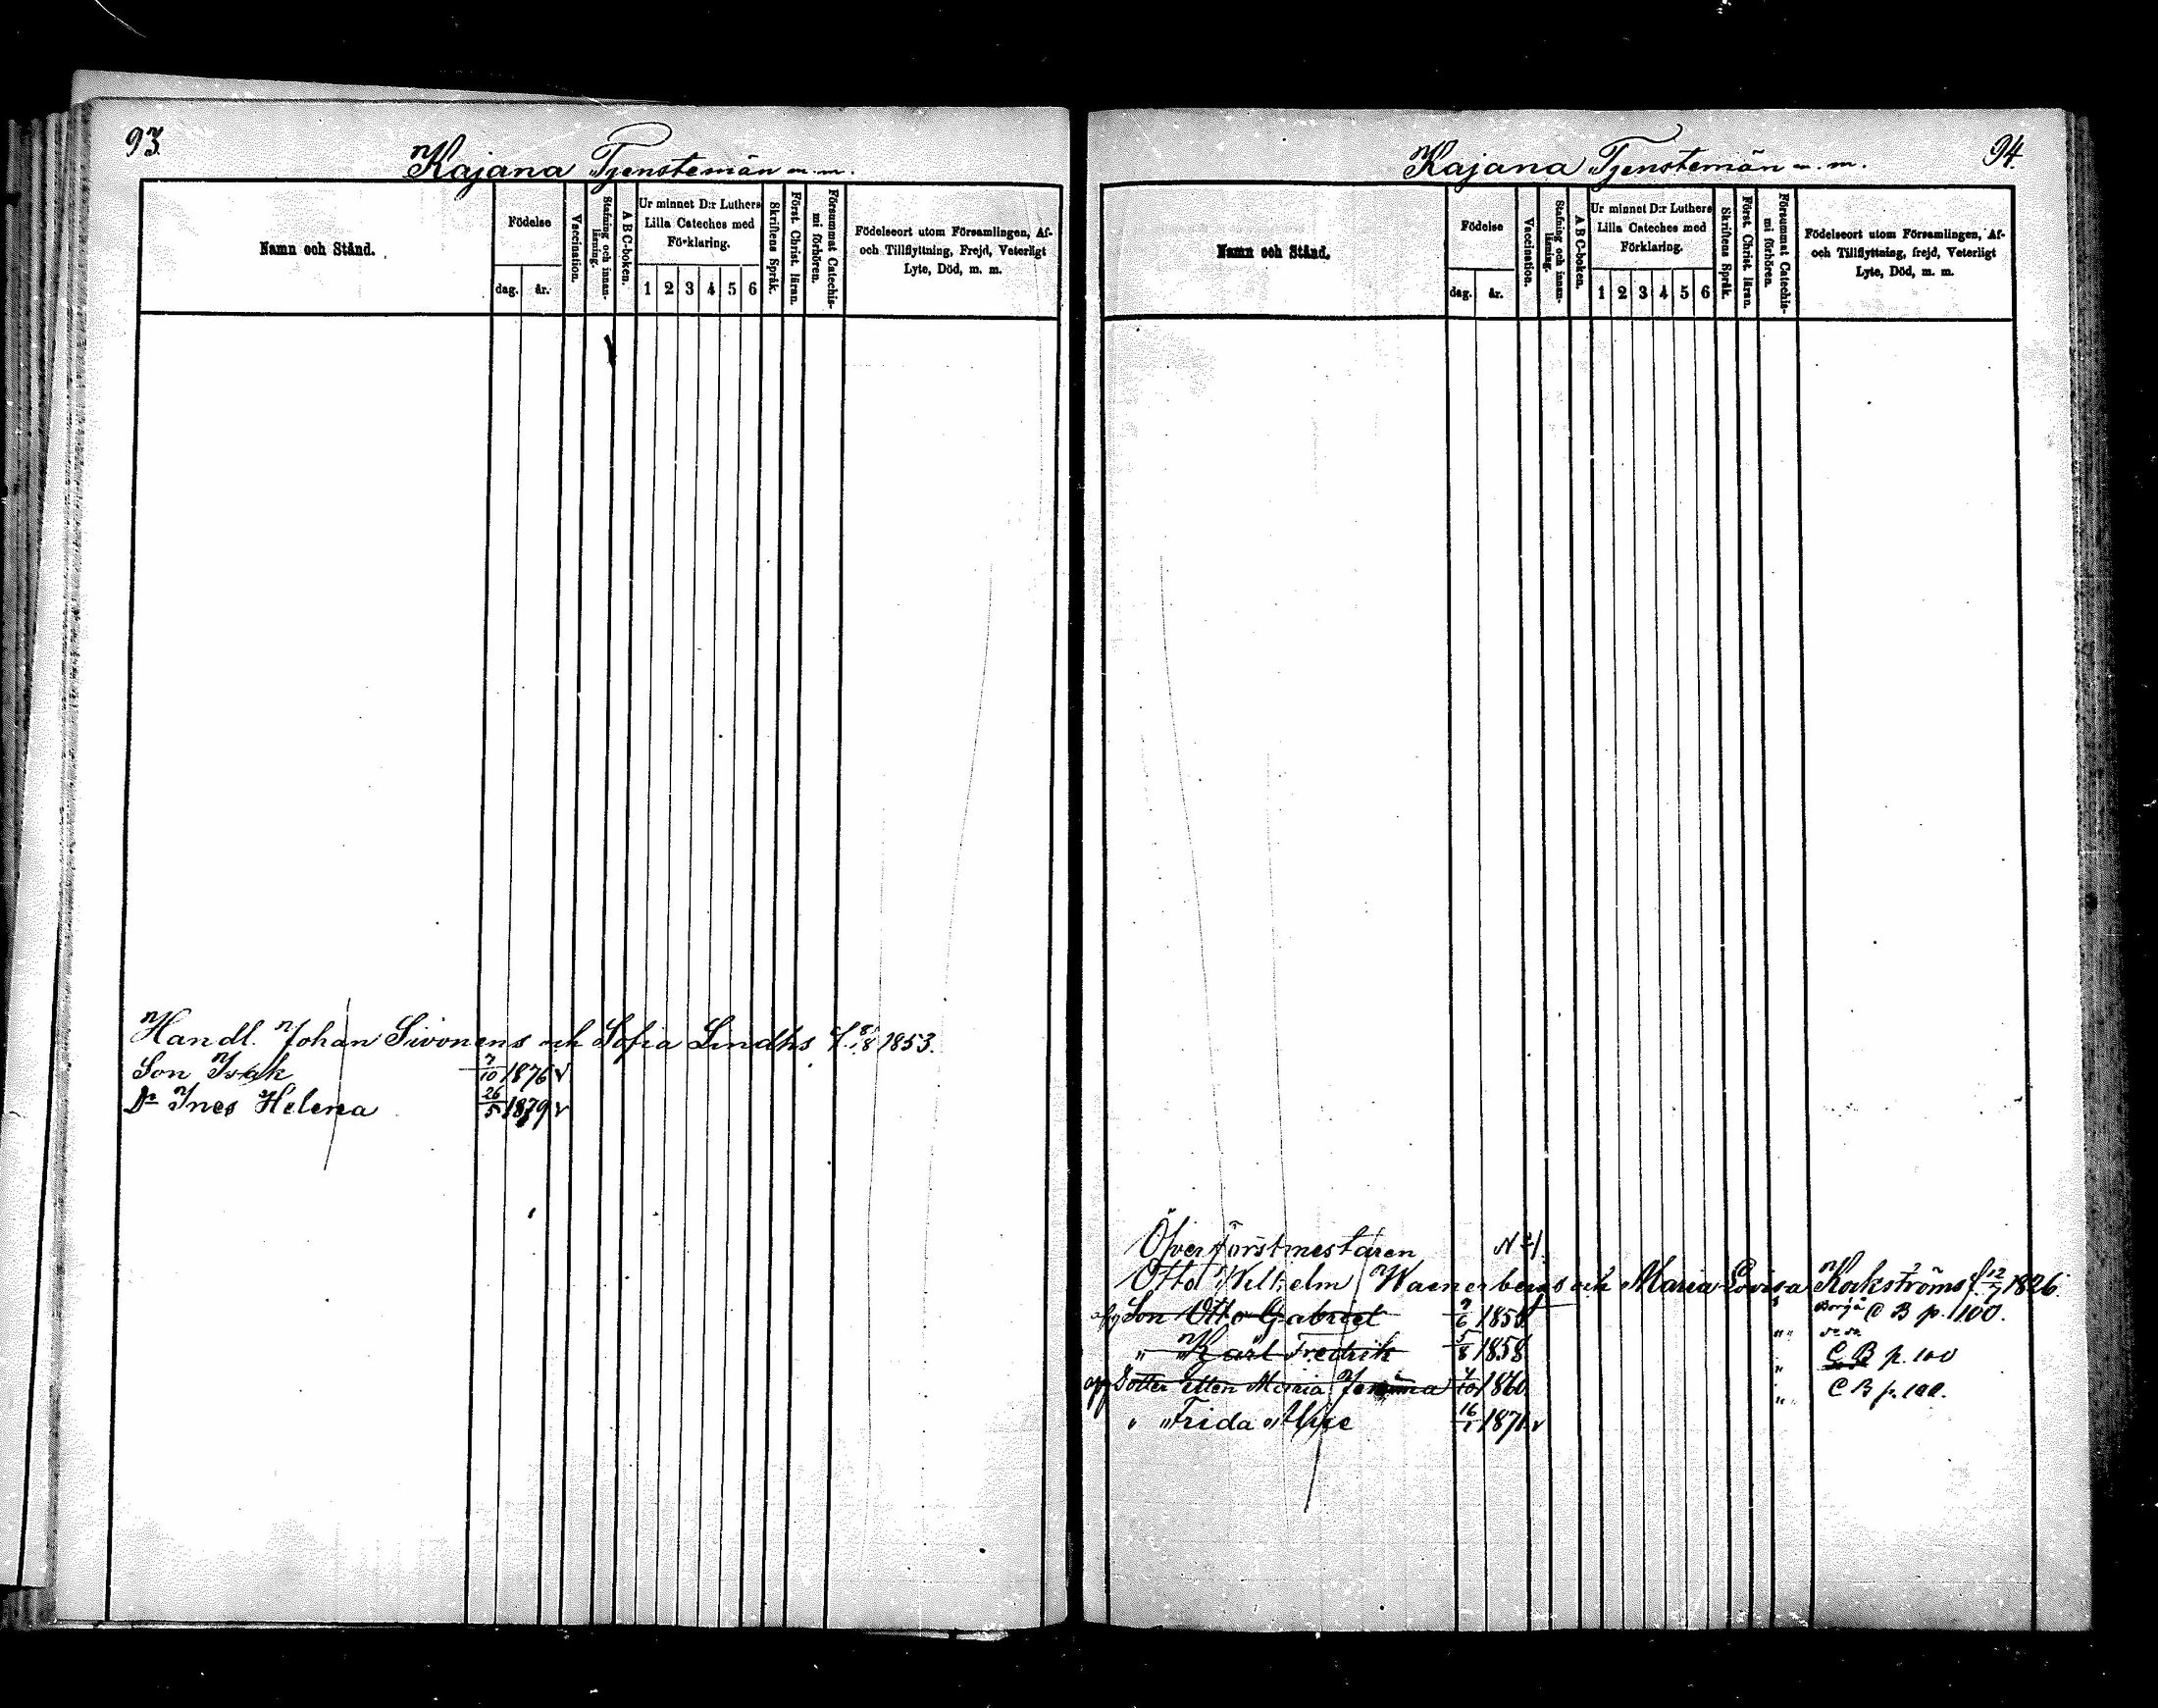 93.
Kajana Tjenstemän m. m.
Namn och Stånd.
Födelse
dag.
år.
Vaccination.
Stafning och innan-
läsning.
A B C-boken.
Ur minnet D:r Luthers
Lilla Cateches med
Förklaring.
1 2 3 4 5 6
Skriftens Språk.
Först. Christ. läran.
Försummat Catechis-
mi förhören.
Födelseort utom Församlingen, Af-
och Tillflyttning, Frejd, Veterligt
Lyte, Död, m. m.
Handl. Johan Sivonens och Sofia Lindhs f. 8/8 1853.
Son Isak 7/10 1876 v
Dr Ines Helena 26/5 1879 v
94.
Kajana Tjenstemän m. m.
Namn och Stånd.
Födelse
dag.
år.
Vaccination.
Stafning och innan-
läsning.
A B C-boken.
Ur minnet D:r Luthers
Lilla Cateches med
Förklaring.
1 2 3 4 5 6
Skriftens Språk.
Först. Christ. läran.
Försummat Catechis-
mi förhören.
Födelseort utom Församlingen, Af-
och Tillflyttning, frejd, Veterligt
Lyte, Död, m. m.
Öfverförstmestaren N 21.
Otto Wilhelm Warnerbergs och Maria Lovisa f. 12/7 1826.
Son Otto Gabriel 9/6 1856 Borgå C B p. 100.
" Karl Fredrik 5/8 1858 C B p. 100
Dotter Ellen Maria 1860 C B p. 100.
" Frida Alice 16/1 1871 v